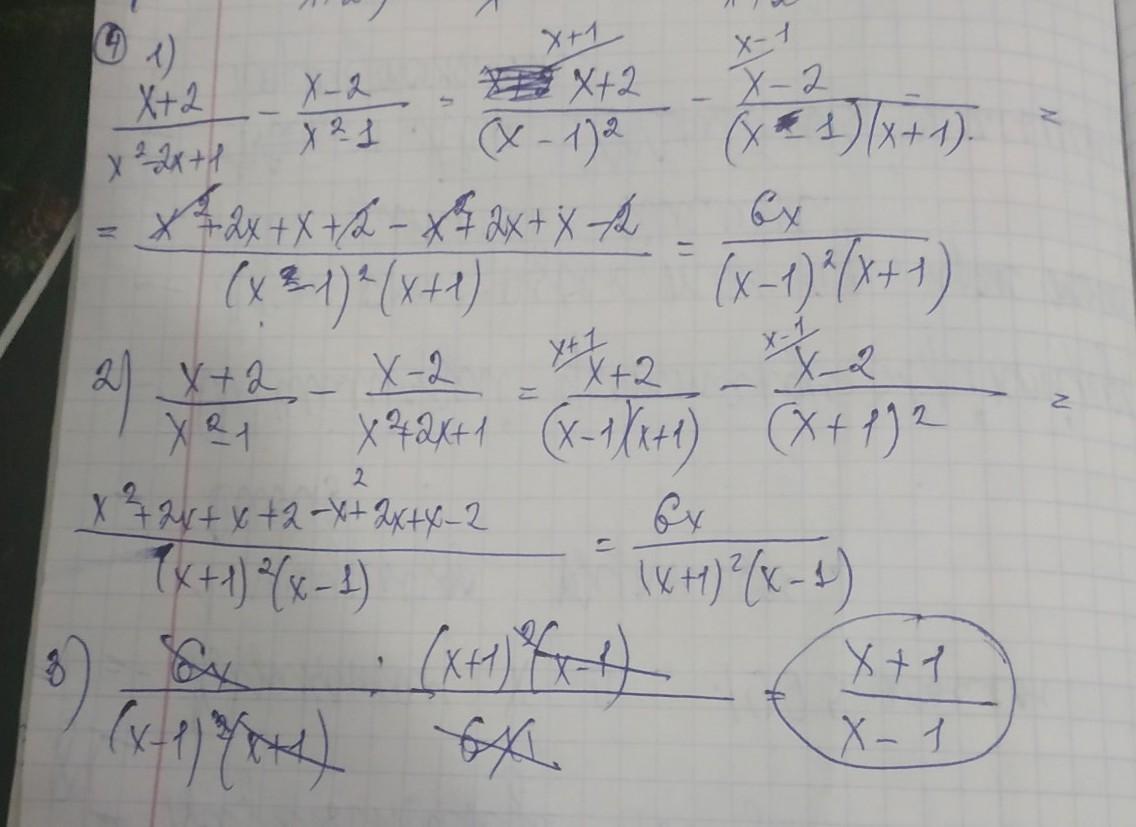 ④ 1)
x+1 x-1
x+2/x²-2x+1 - x-2/x²-1 = x+2/(x-1)² - x-2/(x-1)(x+1) =
= x²+2x+x+2-x²+2x+x-2/(x-1)²(x+1) = 6x/(x-1)²(x+1)
x+1 x-1
2) x+2/x²-1 - x-2/x²+2x+1 = x+2/(x-1)(x+1) - x-2/(x+1)² =
x²+2x+x+2-x²+2x+x-2/(x+1)²(x-1) = 6x/(x+1)²(x-1)
3) 6x/(x-1)²(x+1) · (x+1)²(x-1)/6x = x+1/x-1